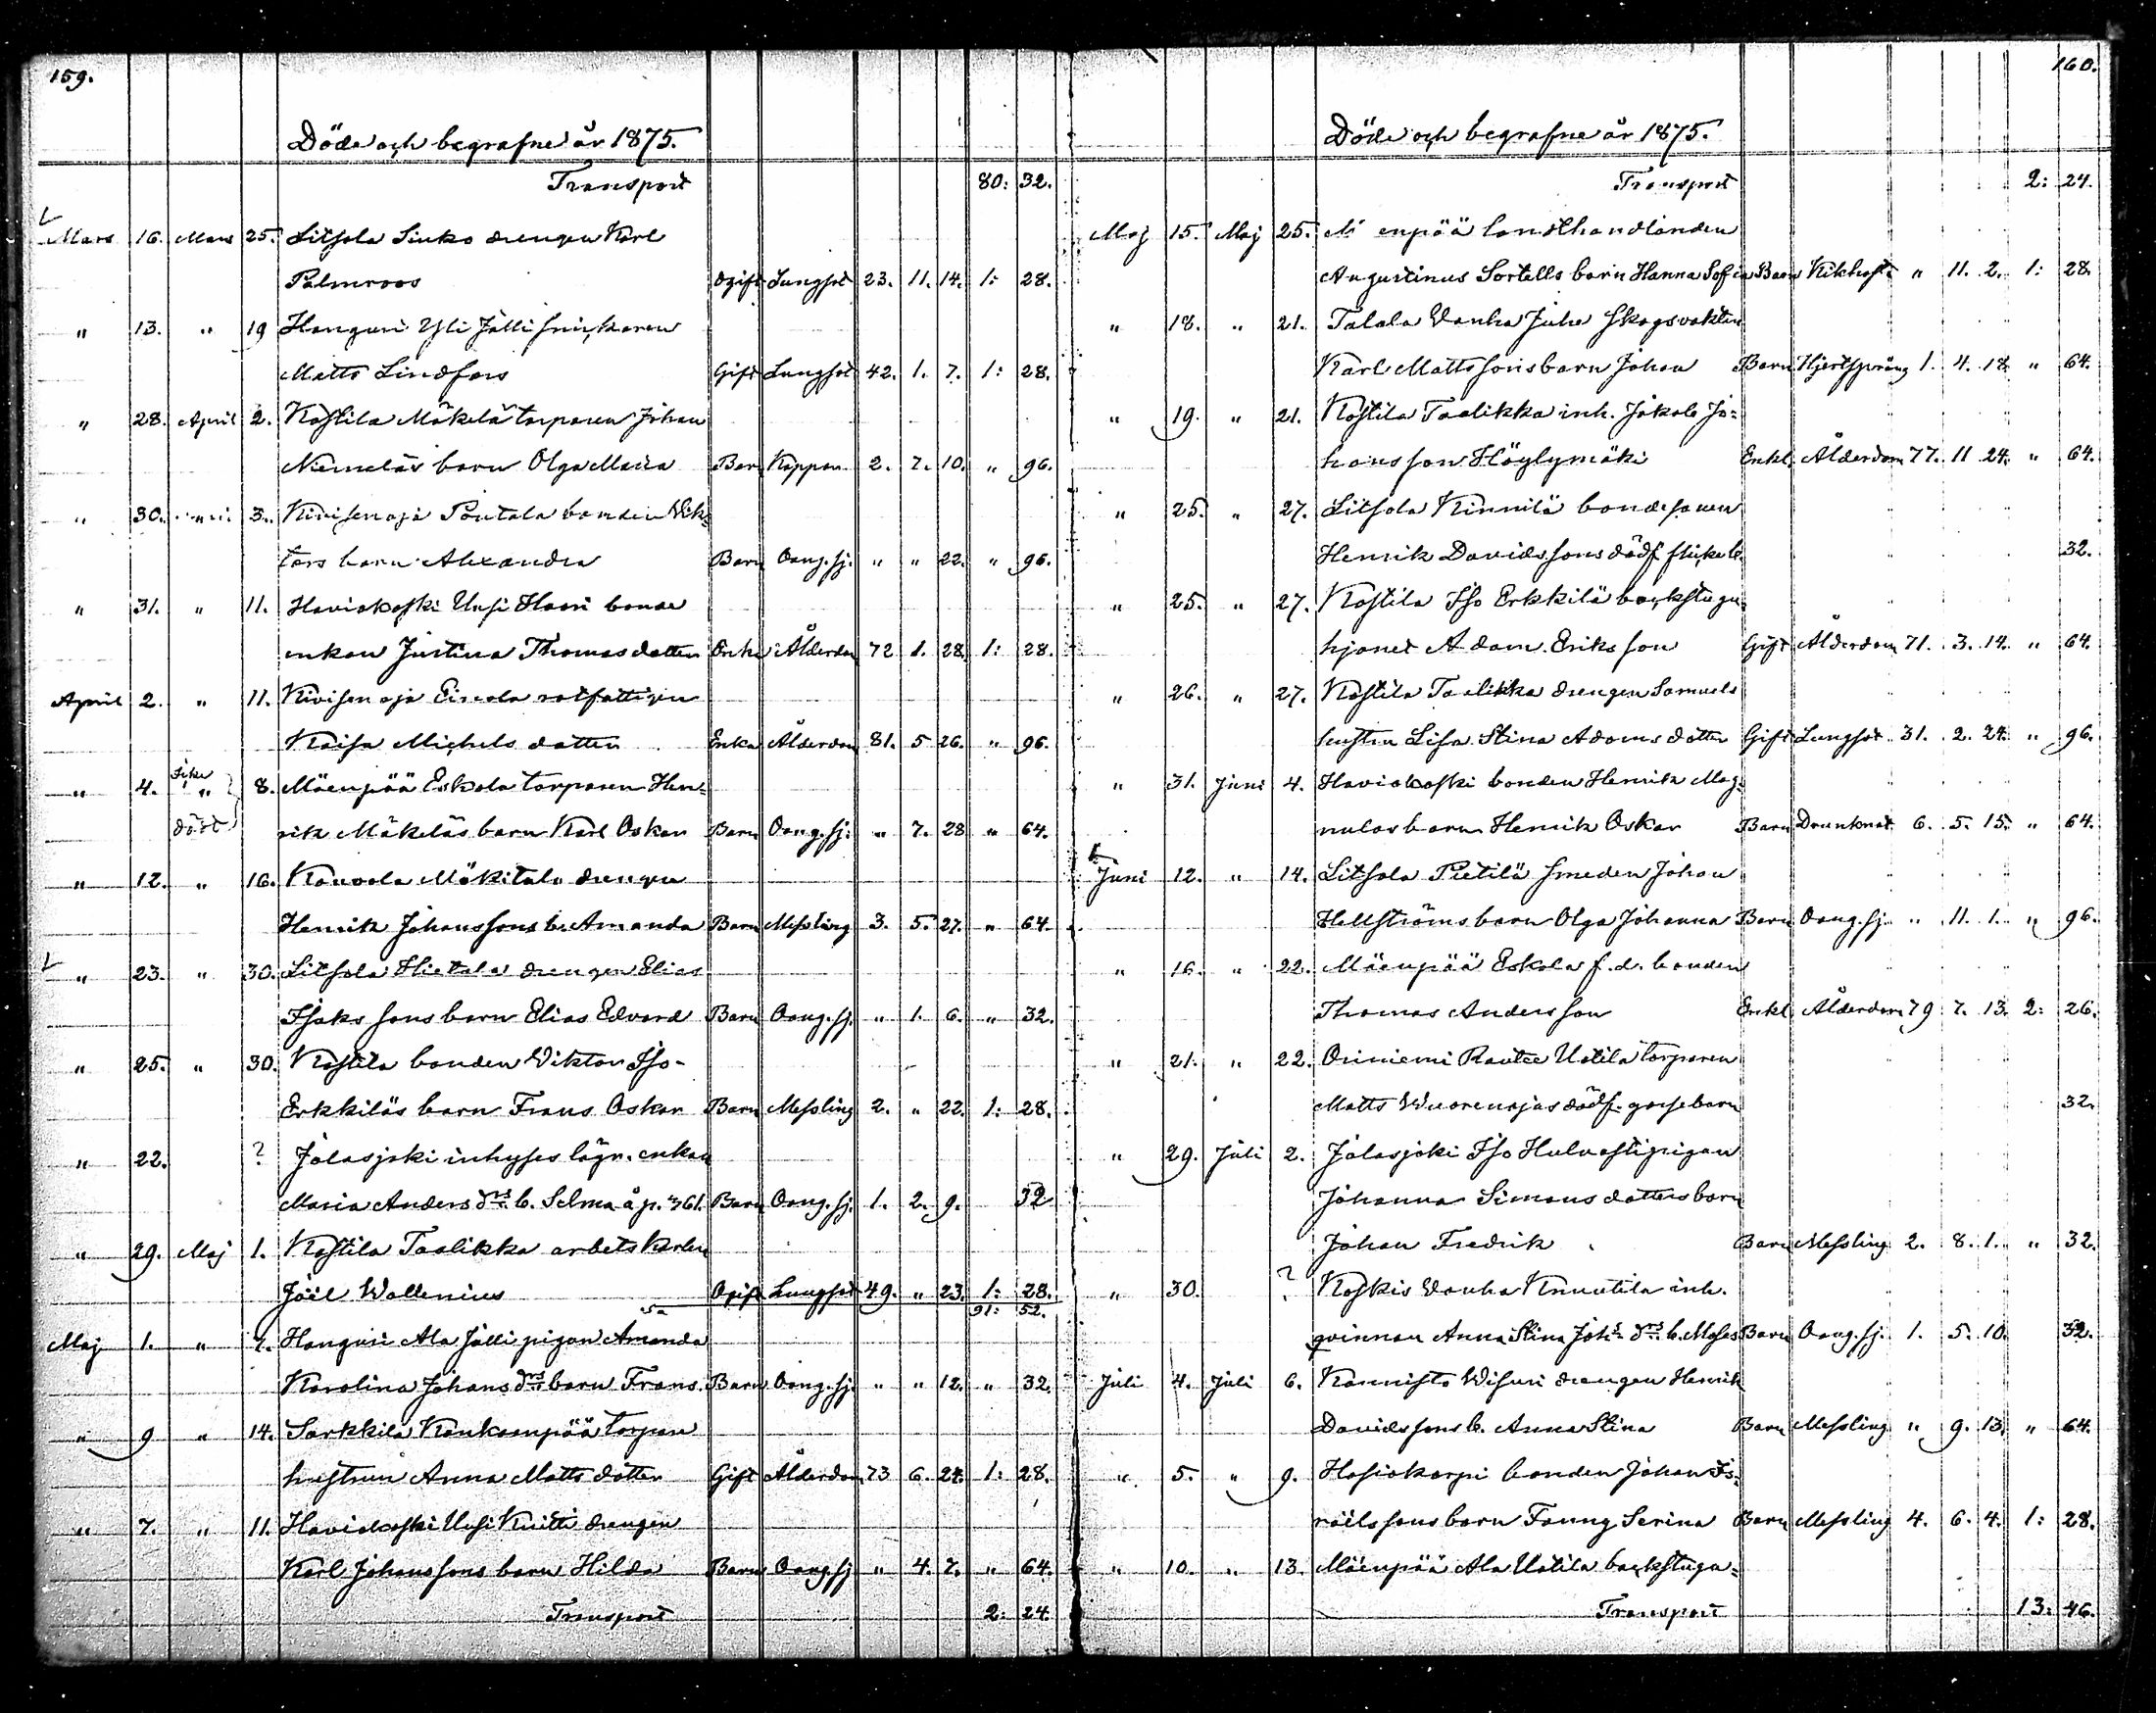 159.
Döde och begrafne år 1875.
Transport 80: 32.
Mars 16. Mars 25. Litsola Sinko drengen Karl
Palmroos Ogift Lungsot 23. 11. 14. 1: 28.
" 13. " 19 Hanguri Yli Jålli snickaren
Matts Lindfors Gift Lungsot 42. 1. 7. 1: 28.
" 28. April 2. Kostila Mäkelä torparen Johan
Niemeläs barn Olga Maria Barn Koppor 2. 7. 10. " 96.
" 30. 3. Kivisenoja Pöntala bonden Vik-
tors barn Alexandra Barn Oang. sj. " " 22. " 96.
" 31. " 11. Haviokoski Uusi Haari bonde
enkan Justina Thomasdotter Enka Ålderdom 72 1. 28. 1: 28.
April 2. " 11. Kivisenoja Eirola rotfattigen
Kaisa Michelsdotter Enka Ålderdom 81. 5 26. " 96.
" 4. " 8. Mäenpää Eskola torparen Hen-
rik Mäkeläs barn Karl Oskar Barn Oang. sj. " 7. 28 " 64.
" 12. " 16. Kouvola Mäkitalo drengen
Henrik Johanssons b. Amanda Barn Messling 3. 5. 27. " 64.
" 23. " 30. Litsola Hietala drengen Elias
Isakssons barn Elias Edvard Barn Oang. sj. " 1. 6. " 32.
" 25. " 30. Kostila bonden Viktor Iso-
Erkkiläs barn Frans Oskar Barn Messling 2. " 22. 1: 28.
" 22. ? Jalasjoki inhyses lägr. enkan
Maria Anders drs b. Selma å p. 361. Barn Oang. sj. 1. 2. 9. 32
" 29. Maj 1. Kostila Taalikka arbetskarlen
Joël Wallenius Ogift Lungsot 49. " 23. 1: 28.
91: 52.
Maj 1. " 7. Hanguri Ala Jålli pigan Amanda
Karolina Johans drs barn Frans Barn Oang. sj. " " 12. " 32.
" 9 " 14. Sarkkila Kankaanpää torpare
hustrun Anna Mattsdotter Gift Ålderdom 73 6. 24. 1: 28.
" 7. " 11. Haviokoski Uusi Knitti drengen
Karl Johanssons barn Hilda Barn Oang. sj. " 4. 7. " 64.
Transport 2: 24
160.
Döde och begrafne år 1875.
Transport 2: 24.
Maj 15. Maj 25. enpää landthandlanden
Augustinus Sortells barn Hanna Sofia Barn Kikhosta " 11. 2. 1: 28.
" 18. " 21. Talala Vanha Juho skogsvakten
Karl Mattssons barn Johan Barn Hjertsprång 1. 4. 18. " 64.
" 19. " 21. Kostila Taalikka inh. Jakob Jo-
hansson Höylymäki Enkl. Ålderdom 77. 11 24. " 64.
" 25. " 27. Litsola Kinnilä bondesonen
Henrik Davidssons dödf. flickeb. 32.
" 25. " 27. Kostila Iso Erkkilä backstugu-
hjonet Adam Eriksson Gift Ålderdom 71. 3. 14. " 64.
" 26. " 27. Kostila Taalikka drengen Samuels
hustru Lisa Stina Adamsdotter Gift Lungsot 31. 2. 24. " 96.
" 31. Juni 4. Haviokoski bonden Henrik Mag-
nulas barn Henrik Oskar Barn Drunknat 6. 5. 15. " 64.
Juni 12. " 14. Litsola Pietilä smeden Johan
Hellströms barn Olga Johanna Barn Oang. sj. " 11. 1. " 96.
" 16. " 22. Mäenpää Eskola f. d. bonden
Thomas Andersson Enkl. Ålderdom 79 7. 13. 2: 26.
" 21. " 22. Oriniemi Rautee Uotila torparen
Matts Wuorenojas dödf. gossebarn 32.
" 29. Juli 2. Jalasjoki Iso Hulvasti pigan
Johanna Simonsdotters barn
Johan Fredrik Barn Messling 2. 8. 1. " 32.
" 30. ? Koskis Vanha Knuutila inh.
qvinnan Anna Stina Johs drs b. Moses Barn Oang. sj. 1. 5. 10. 32.
Juli 4. Juli 6. Kannisto Wisuri drengen Henrik
Davidssons b. Anna Stina Barn Messling " 9. 13. " 64.
" 5. " 9. Hasiokorpi bonden Johan Is-
raëlssons barn Fanny Serina Barn Messling 4. 6. 4. 1: 28.
" 10. " 13. Mäenpää Ala Uotila backstugu-
Transport 13: 46.